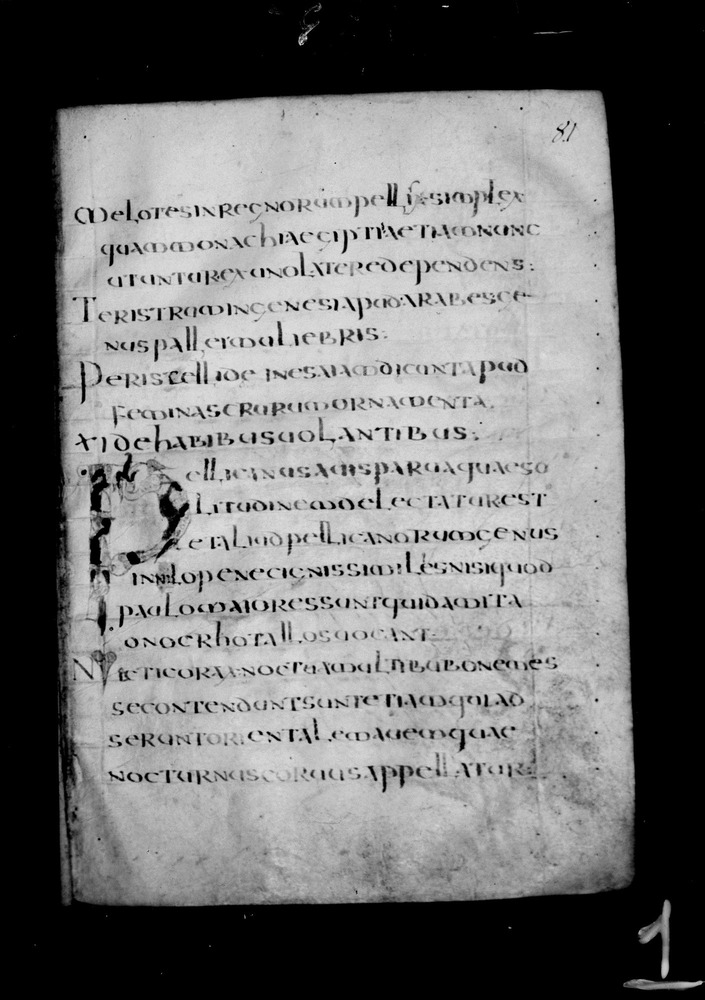 81
melotesinregnorumpellissimplex
quammonachiaegiptiaetiamnunc
utunturexunolateredependens:
Teristrumingenesiapudarabesge
nuspalleimuliebris:
Periscellide inesaiamdicuntapud
feminascrurumornamenta.
xidehabibusuolantibus:
Pellicanusauisparuaquaeso
litudinemdelectaturest
etaliudpellicanorumgenus
innilopenecignissimilesnisiquod
paulomaioressuntquidamita
onocrhotallosuocant
Nycticoraxnoctuamultibubonemes
secontenduntsuntetiamquiad
seruntorientalemauemquae
nocturnuscoruusappellatur:
1